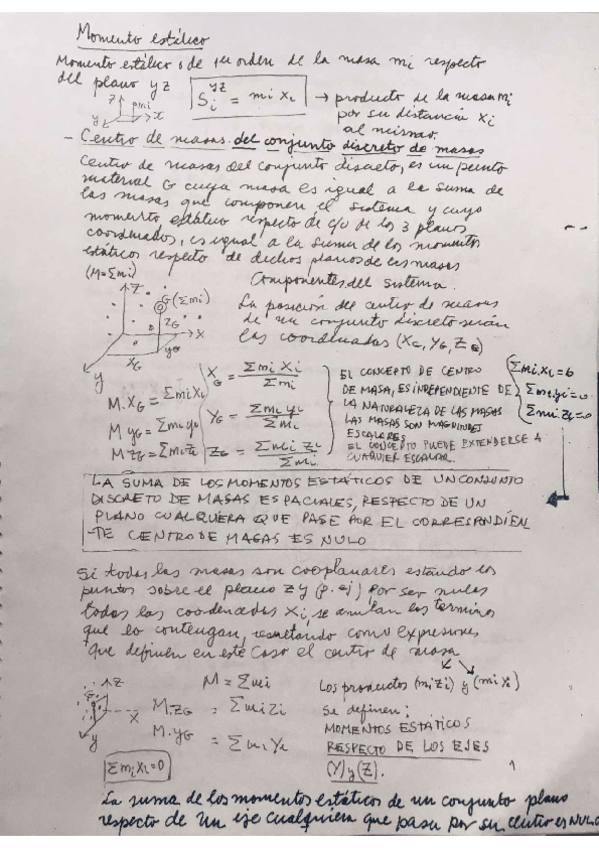 Momento estático
Momento estático ó de 1er orden de la masa mi respecto
del plano yz
S_i^yz = mi xi → producto de la masa mi
por su distancia xi
al mismo.
z mi
y x
- Centro de masas del conjunto discreto de masas
Centro de masas del conjunto discreto, es un punto
material G cuya masa es igual a la suma de
las masas que componen el sistema y cuyo
momento estático respecto de c/u de los 3 planos
coordenados, es igual a la suma de los momentos
estáticos respecto de dichos planos de las masas
(M=Σmi) Componentes del sistema.
Z G(Σmi) La posición del centro de masas
de un conjunto discreto serán
ZG X las coordenadas (XG, YG, ZG)
XG yG
y
M.XG = Σmi Xi XG = Σmi Xi / Σmi
M yG = Σmi yi YG = Σmi yi / Σmi
M ZG = Σmi Zi ZG = Σmi Zi / Σmi
EL CONCEPTO DE CENTRO
DE MASA, ES INDEPENDIENTE DE
LA NATURALEZA DE LAS MASAS
LAS MASAS SON MAGNITUDES
ESCALARES
EL CONCEPTO PUEDE EXTENDERSE A
CUALQUIER ESCALAR.
Σmi.Xi=0
Σmi.yi=0
Σmi.Zi=0
LA SUMA DE LOS MOMENTOS ESTÁTICOS DE UN CONJUNTO
DISCRETO DE MASAS ESPACIALES, RESPECTO DE UN
PLANO CUALQUERA QUE PASE POR EL CORRESPONDIEN
-TE CENTRO DE MASAS ES NULO
Si todas las masas son cooplanares estando los
puntos sobre el plano ZY (p.ej) por ser nulas
todas las coordenadas Xi, se anulan los terminos
que lo contengan, resultando como expresiones
que definen en este caso el centro de masa
Z X y
M = Σmi
M.ZG = Σmi Zi
M.yG = Σmi Yi
Σmi Xi=0
Los productos (mi Zi) y (mi Yi)
se definen:
MOMENTOS ESTÁTICOS
RESPECTO DE LOS EJES
(Y) y (Z).
1
La suma de los momentos estáticos de un conjunto plano
respecto de un eje cualquiera que pasa por su centro es NULO